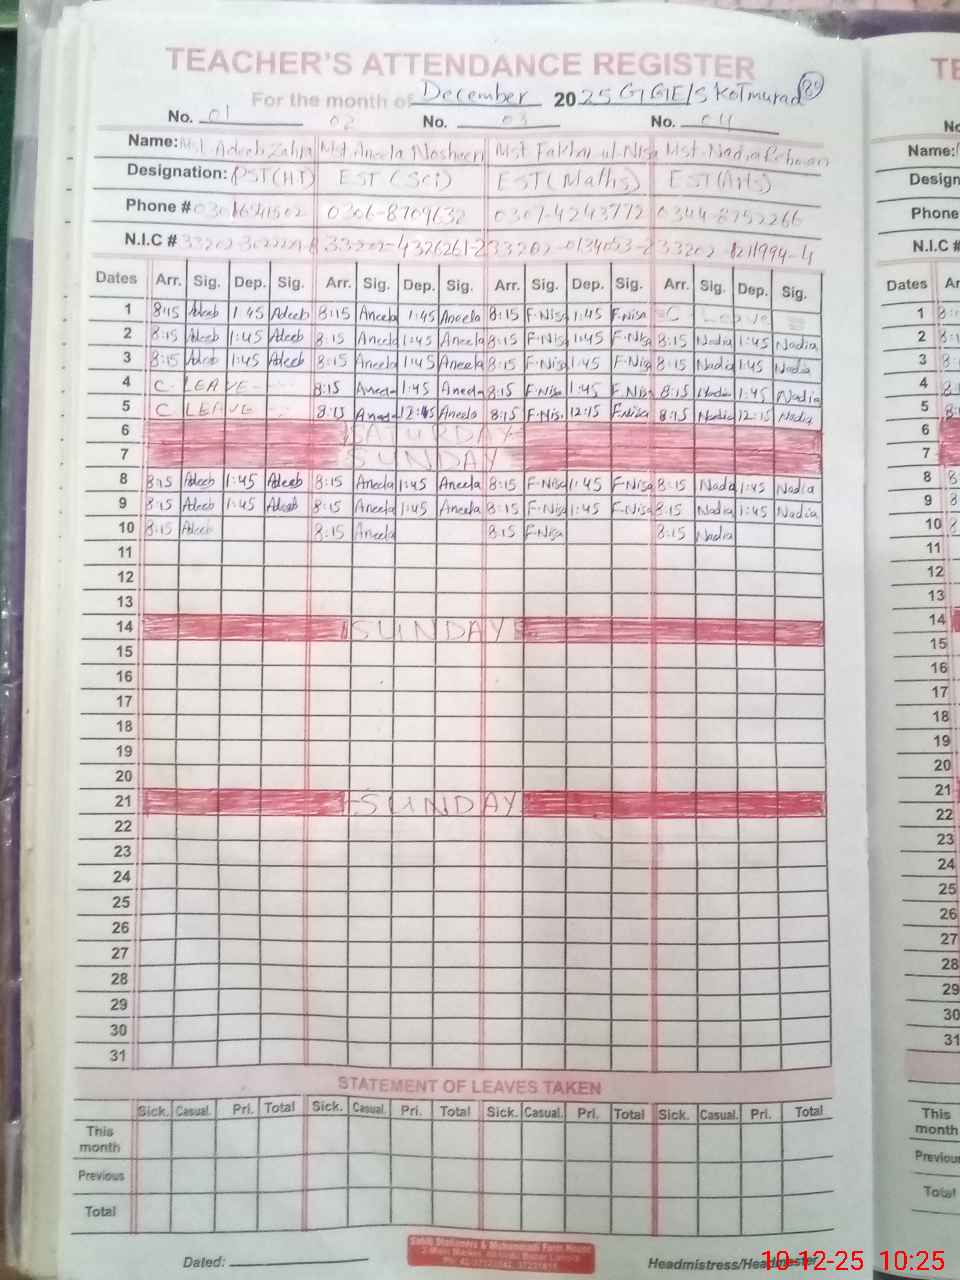 TEACHER'S ATTENDANCE REGISTER
For the month of December 2025 GGE/S Kotmurad 89
No. 01 02 No. 03 No. 04
Name: Mst. Adeeb Zahra Mst. Aneela Nosheen Mst Fakhar-ul-Nisa Mst. Nadia Rehman
Designation: PST(HT) EST (Sci) EST (Maths) EST (Arts)
Phone # 0306-8709632 0307-4243772 0344-8752266
N.I.C # 33202-4326261-2 33202-0134053-2
Dates Arr. Sig. Dep. Sig. Arr. Sig. Dep. Sig. Arr. Sig. Dep. Sig. Arr. Sig. Dep. Sig.
1 8:15 Adeeb 1:45 Adeeb 8:15 Aneela 1:45 Aneela 8:15 F-Nisa 1:45 F.Nisa C - Leave
2 8:15 Adeeb 1:45 Adeeb 8:15 Aneela 1:45 Aneela 8:15 F-Nisa 1:45 F-Nisa 8:15 Nadia 1:45 Nadia
3 8:15 Adeeb 1:45 Adeeb 8:15 Aneela 1:45 Aneela 8:15 F-Nisa 1:45 F-Nisa 8:15 Nadia 1:45 Nadia
4 C- LEAVE- 8:15 Aneela 1:45 Aneela 8:15 F-Nisa 1:45 F-Nisa 8:15 Nadia 1:45 Nadia
5 C LEAVE - 8:15 Aneela 12:15 Aneela 8:15 F-Nisa 12:15 F-Nisa 8:15 Nadia 12:15 Nadia
6 SATURDAY
7 SUNDAY
8 8:15 Adeeb 1:45 Adeeb 8:15 Aneela 1:45 Aneela 8:15 F-Nisa 1:45 F-Nisa 8:15 Nadia 1:45 Nadia
9 8:15 Adeeb 1:45 Adeeb 8:15 Aneela 1:45 Aneela 8:15 F-Nisa 1:45 F-Nisa 8:15 Nadia 1:45 Nadia
10 8:15 Adeeb 8:15 Aneela 8:15 F-Nisa 8:15 Nadia
11
12
13
14 SUNDAY
15
16
17
18
19
20
21 SUNDAY
22
23
24
25
26
27
28
29
30
31
STATEMENT OF LEAVES TAKEN
Sick. Casual. Pri. Total Sick. Casual. Pri. Total Sick. Casual. Pri. Total Sick. Casual. Pri. Total
This month
Previous
Total
Dated: Headmistress/Headmaster
10-12-25 10:25
TE
No
Name:
Design
Phone #
N.I.C #
Dates Ar
1
2
3
4
5
6
7
8
9
10
11
12
13
14
15
16
17
18
19
20
21
22
23
24
25
26
27
28
29
30
31
This month
Previou
Total